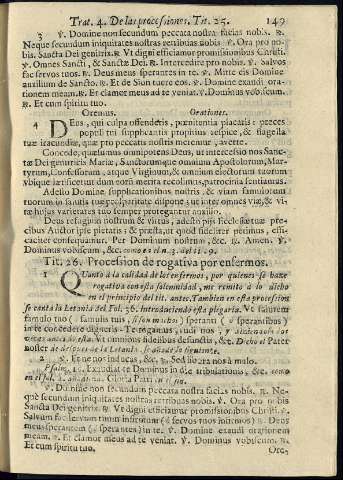 Trat. 4. De las processiones. Tit. 25. 149
3 ℣. Domine non secundum peccata nostra facias nobis. ℟.
Neque secundum iniquitates nostras retribuas nobis ℣. Ora pro no-
bis. Sancta Dei genitrix. ℟. Vt digni efficiamur promissionibus Christi.
℣. Omnes Sancti, & Sanctæ Dei. ℟. Intercedite pro nobis. ℣. Salvos
fac servos tuos. ℟. Deus meus sperantes in te. ℣. Mitte eis Domine
auxilium de Sancto. ℟. Et de Sion tuere eos. ℣. Domine exaudi ora-
tionem meam. ℟. Et clamor meus ad te veniat. ℣. Dominus vobiscum.
℟. Et cum spiritu tuo.
Oremus. Orationes.
4 DEus, qui culpa offenderis, pœnitentia placaris: preces
populi tui supplicantis propitius respice, & flagella
tuæ iracundiæ, quæ pro peccatis nostris meremur, averte.
Concede, quæsumus omnipotens Deus, ut intercessio nos Sanc-
tæ Dei genitricis Mariæ, Sanctorumque omnium Apostolorum, Mar-
tyrum, Confessorum, atque Virginum, & omnium electorum tuorum
ubique lætificet: ut dum eorum merita recolimus, patrocinia sentiamus.
Adesto Domine supplicationibus nostris, & viam famulorum
tuorum in salutis tuæ prosperitate dispone: ut inter omnes viæ, & vi-
tæ hujus varietates tuo semper protegantur auxilio.
Deus refugium nostrum & virtus, adesto piis Ecclesiæ tuæ pre-
cibus Auctor ipse pietatis: & præsta, ut quod fideliter petimus, effi-
caciter consequamur. Per Dominum nostrum, &c. ℟. Amen. ℣.
Dominus vobiscum, &c. como en el n. 3. del tit. 9.
Tit. 26. Procession de rogativa por enfermos.
1 QUanto à la calidad de los enfermos, por quienes se haze
rogativa con esta solemnidad, me remito à lo dicho
en el principio del tit. antec. Tambien en esta procession
se canta la Letania del Fol. 36. introduciendo esta plegaria. Vt
famulo tuo (famulis tuis, si son muchos) speranti (sperantibus)
in te concedere digneris - Te rogamus, audi nos, y
Vt omnibus fidelibus defunctis, &c. Dicho el Pater
noster de despues de la Letania, se añade lo siguiente.
2 ℣. Et ne nos inducas, &c. ℟. Sed libera nos à malo.
Psalm. Exaudiat te Dominus in die tribulationis, &c. como
en el Gloria Patri
℣. Domine non secundum peccata nostra facias nobis. ℟. Ne-
què secundum iniquitates nostras retribuas nobis. ℣. Ora pro nobis
Sancta Dei genitrix. ℟. Vt digni efficiamur promissionibus Christi. ℣.
Salvum fac servum tuum infirmum (servos tuos infirmos) ℟. Deus
meus sperantem (sperantes) in te. ℣. Domine exaudi orationem
meam. ℟. Et clamor meus ad te veniat. ℣. Dominus vobiscum. ℟.
Et cum spiritu tuo.
Ore-